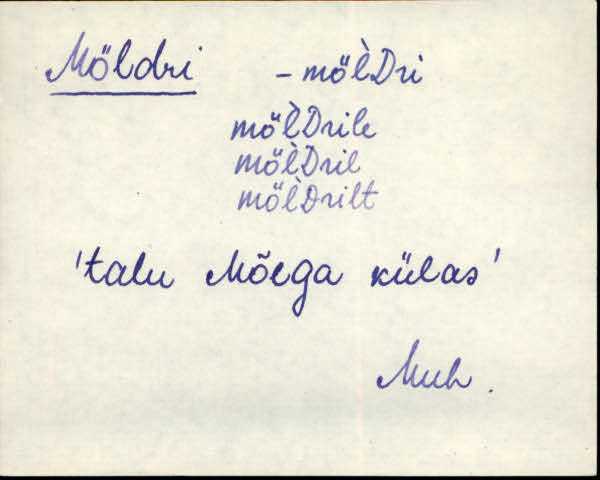 Möldri - möl̀Dri
möl̀Drile
möl̀Dril
möl̀Drilt
'talu Mõega külas'
Muh.